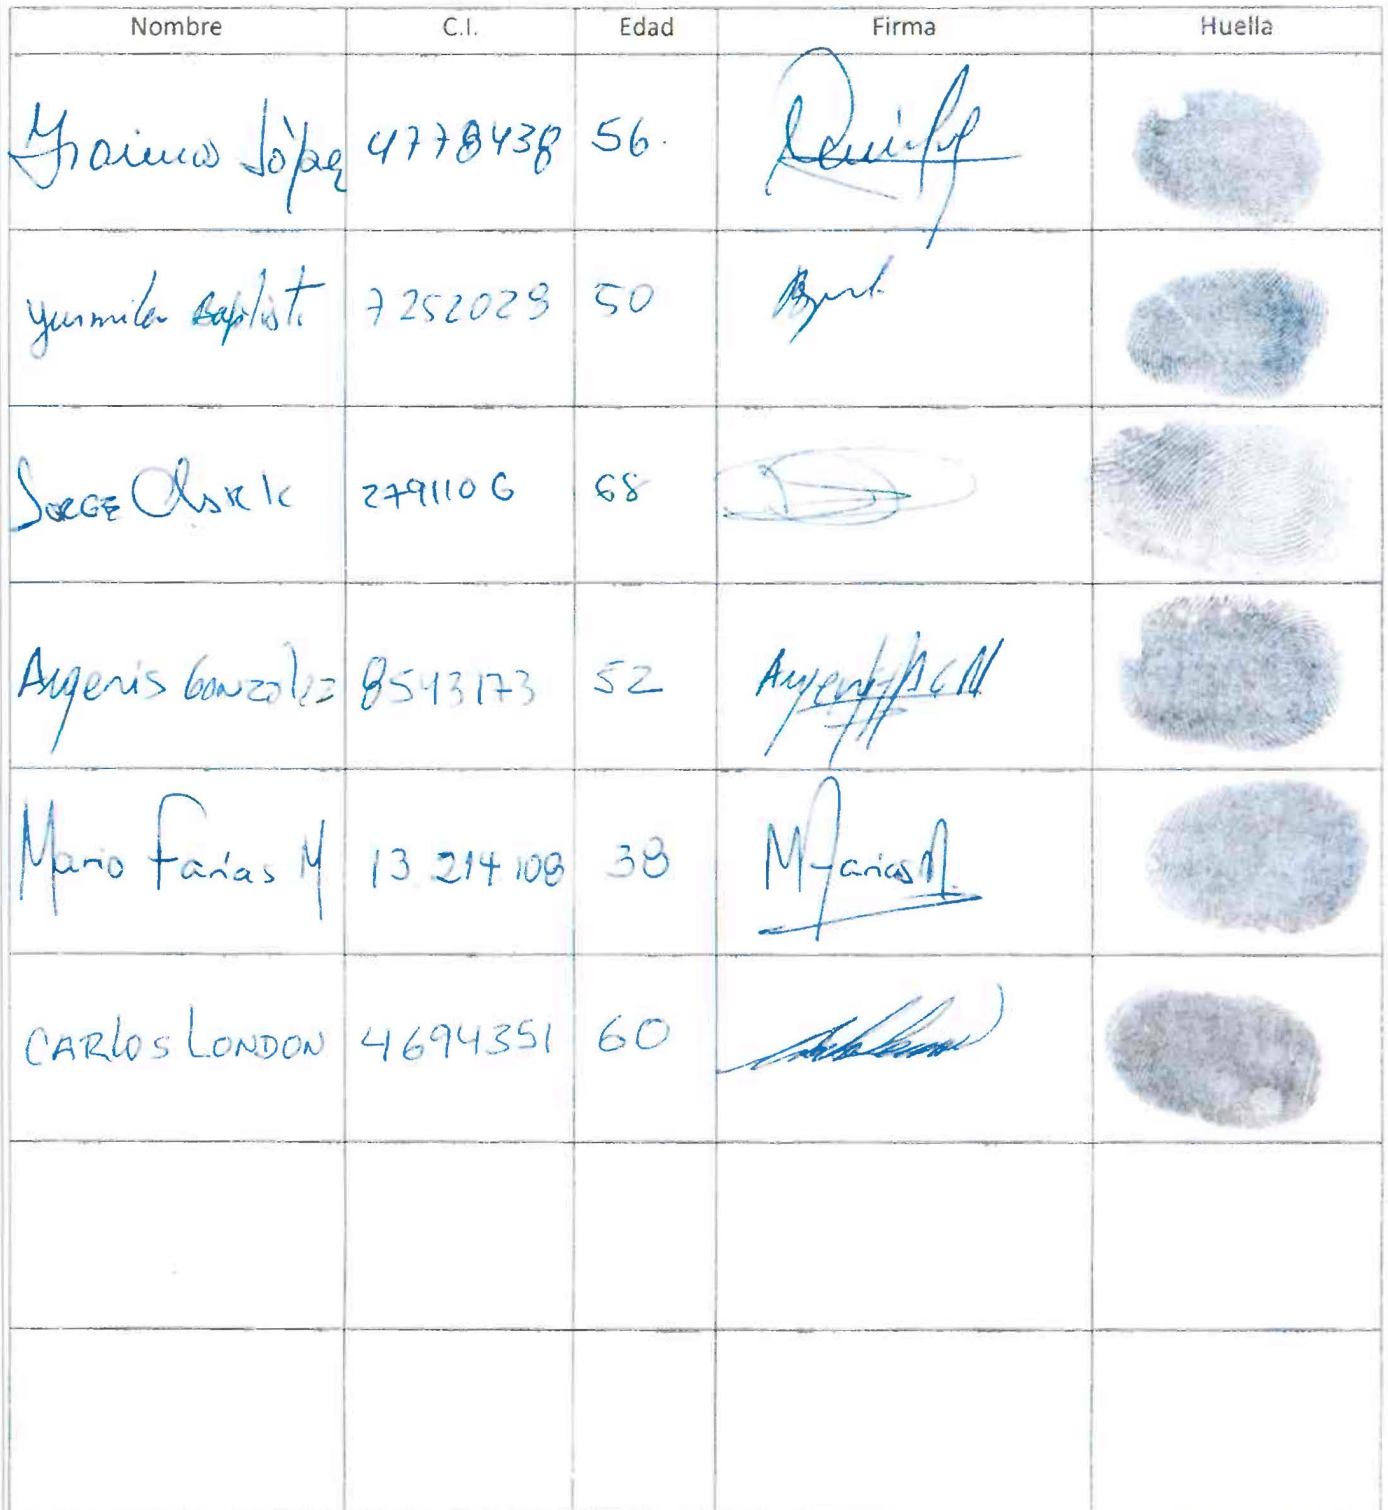 Nombre C.I. Edad Firma Huella
López 4778438 56.
Yurmila Baptist. 7252029 50
JORGE 2791106 68
Argenis González 8543173 52
Mario Farías M 13.214108 38 M Farias M.
CARLOS LONDON 4694351 60